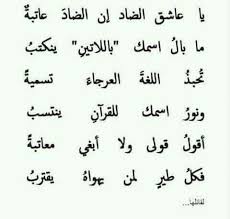 يا عاشق الضاد إن الضادَ عاتبةٌ
ما بالُ اسمك "باللاتينِ" ينكتبُ
تُحبذُ اللغةَ العرجاءَ تسميةً
ونورُ اسمك للقرآنِ ينتسبُ
أقولُ قولى ولا أبغي معاتبةً
فكلُ طيرٍ لمن يهواهُ يقتربُ
لقائلها...